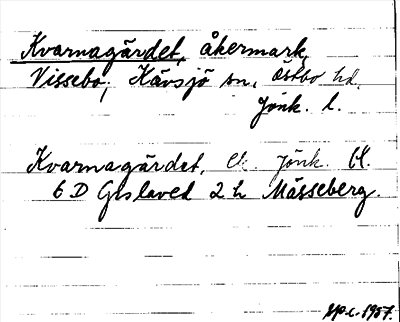 Kvarnagärdet, åkermark,
Vissebo, Kävsjö sn, Östbo hd.
Jönk. l.
Kvarnagärdet, ek. Jönk.
6 D Gislaved 2 h Mässeberg.
1957.